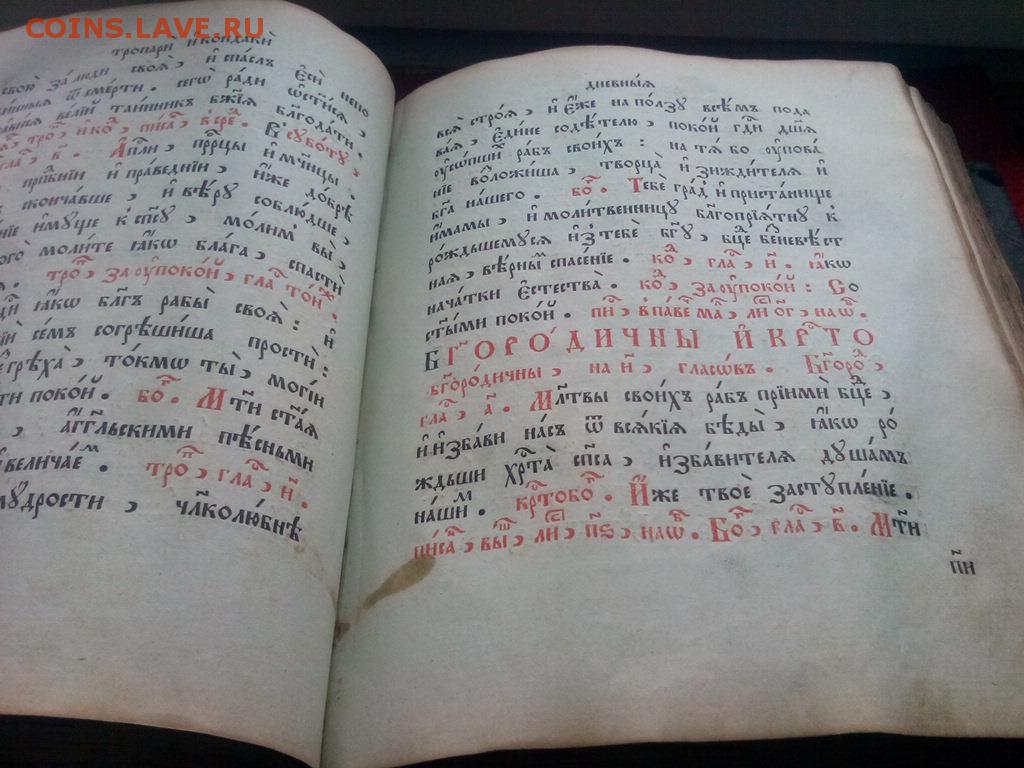 COINS.LAVE.RU
тропарѝ и҆ кондакѝ
свою̀ за́ люди своѧ̀ , и҆ спа́слъ є҆сѝ
ѿ сме́рти . сегѡ̀ ра́ди
ве́лїи таи́нникъ бж҃їѧ благода́ти .
гла́ , в҃ . А҆пⷭ҇ли , прⷪ҇рцы и҆ мч҃нцы ,
прпⷣбнїи и҆ пра́веднїи , и҆́же до́брѣ
сконча́вше , и҆ вѣ́рꙋ соблю́дше ,
и҆мꙋ́ще к̾ сп҃сꙋ , мо́лимъ вы̀ ,
моли́те ꙗ҆́кѡ бла́га , спасти́
тро , за ᲂу҆поко́й , гла
ꙗ҆́кѡ бл҃гъ рабы̀ своѧ̀ :
сем̾ согрѣши́ша простѝ : и҆
грѣха̀ , то́кмѡ ты̀ , могі́и
поко́й . бо . Мт҃и ст҃а́ѧ
, а҆́гг҃льскими пѣ́сньми
велича́ем . тро , гла , и҃ .
мꙋ́дрости , чл҃колю́бнѣ
дневны́ѧ
всѧ̀ стро́ѧ , и҆ є҆́же на по́лзꙋ всѣ́мъ пода
ваѧ , є҆ди́не содѣ́телю , поко́й гдⷭ҇и дш҃а
ᲂу҆со́пшїй ра́бъ свои́хъ : на тѧ̀ бо ᲂу҆пова́
нїе воложи́ша , творца̀ и҆ зижди́телѧ и҆
бг҃а на́шего . бо . Тебѐ гра́д и҆ приста́нище
и҆́мамы , и҆ моли́твенницꙋ бл҃гопрїѧ́тнꙋ к̾
ро́ждьшемꙋсѧ и҆з̾ тебѐ бг҃ꙋ , бц҃е бг҃оневѣ́ст
наѧ , вѣ́рным спасе́нїе . ко , гла , и҃ . ꙗ҆́кѡ
нача́тки є҆стества̀ . ко , за ᲂу҆поко́й : Со
ст҃ы́ми поко́й .
БГ҃ОРО́ДИЧНЫ И҆ КРⷭ҇ТО
бг҃оро́дичны , на и҃ , гласо́въ . Бг҃оро ,
гла , а҃ . Мл҃твы свои́хъ ра́бъ прїимѝ бц҃е ,
и҆ и҆зба́ви на́съ ѿ всѧ́кїѧ бѣды̀ , ꙗ҆́кѡ ро́
ждьши хрⷭ҇та̀ сп҃са , и҆зба́вителѧ дꙋша́мъ
на́ши . крⷭ҇тобо . И҆́же твоѐ застꙋпле́нїе .
писа , вы , ли , п҃ѕ , наѡ . Бо , гла , в҃ . Мт҃и
п҃и